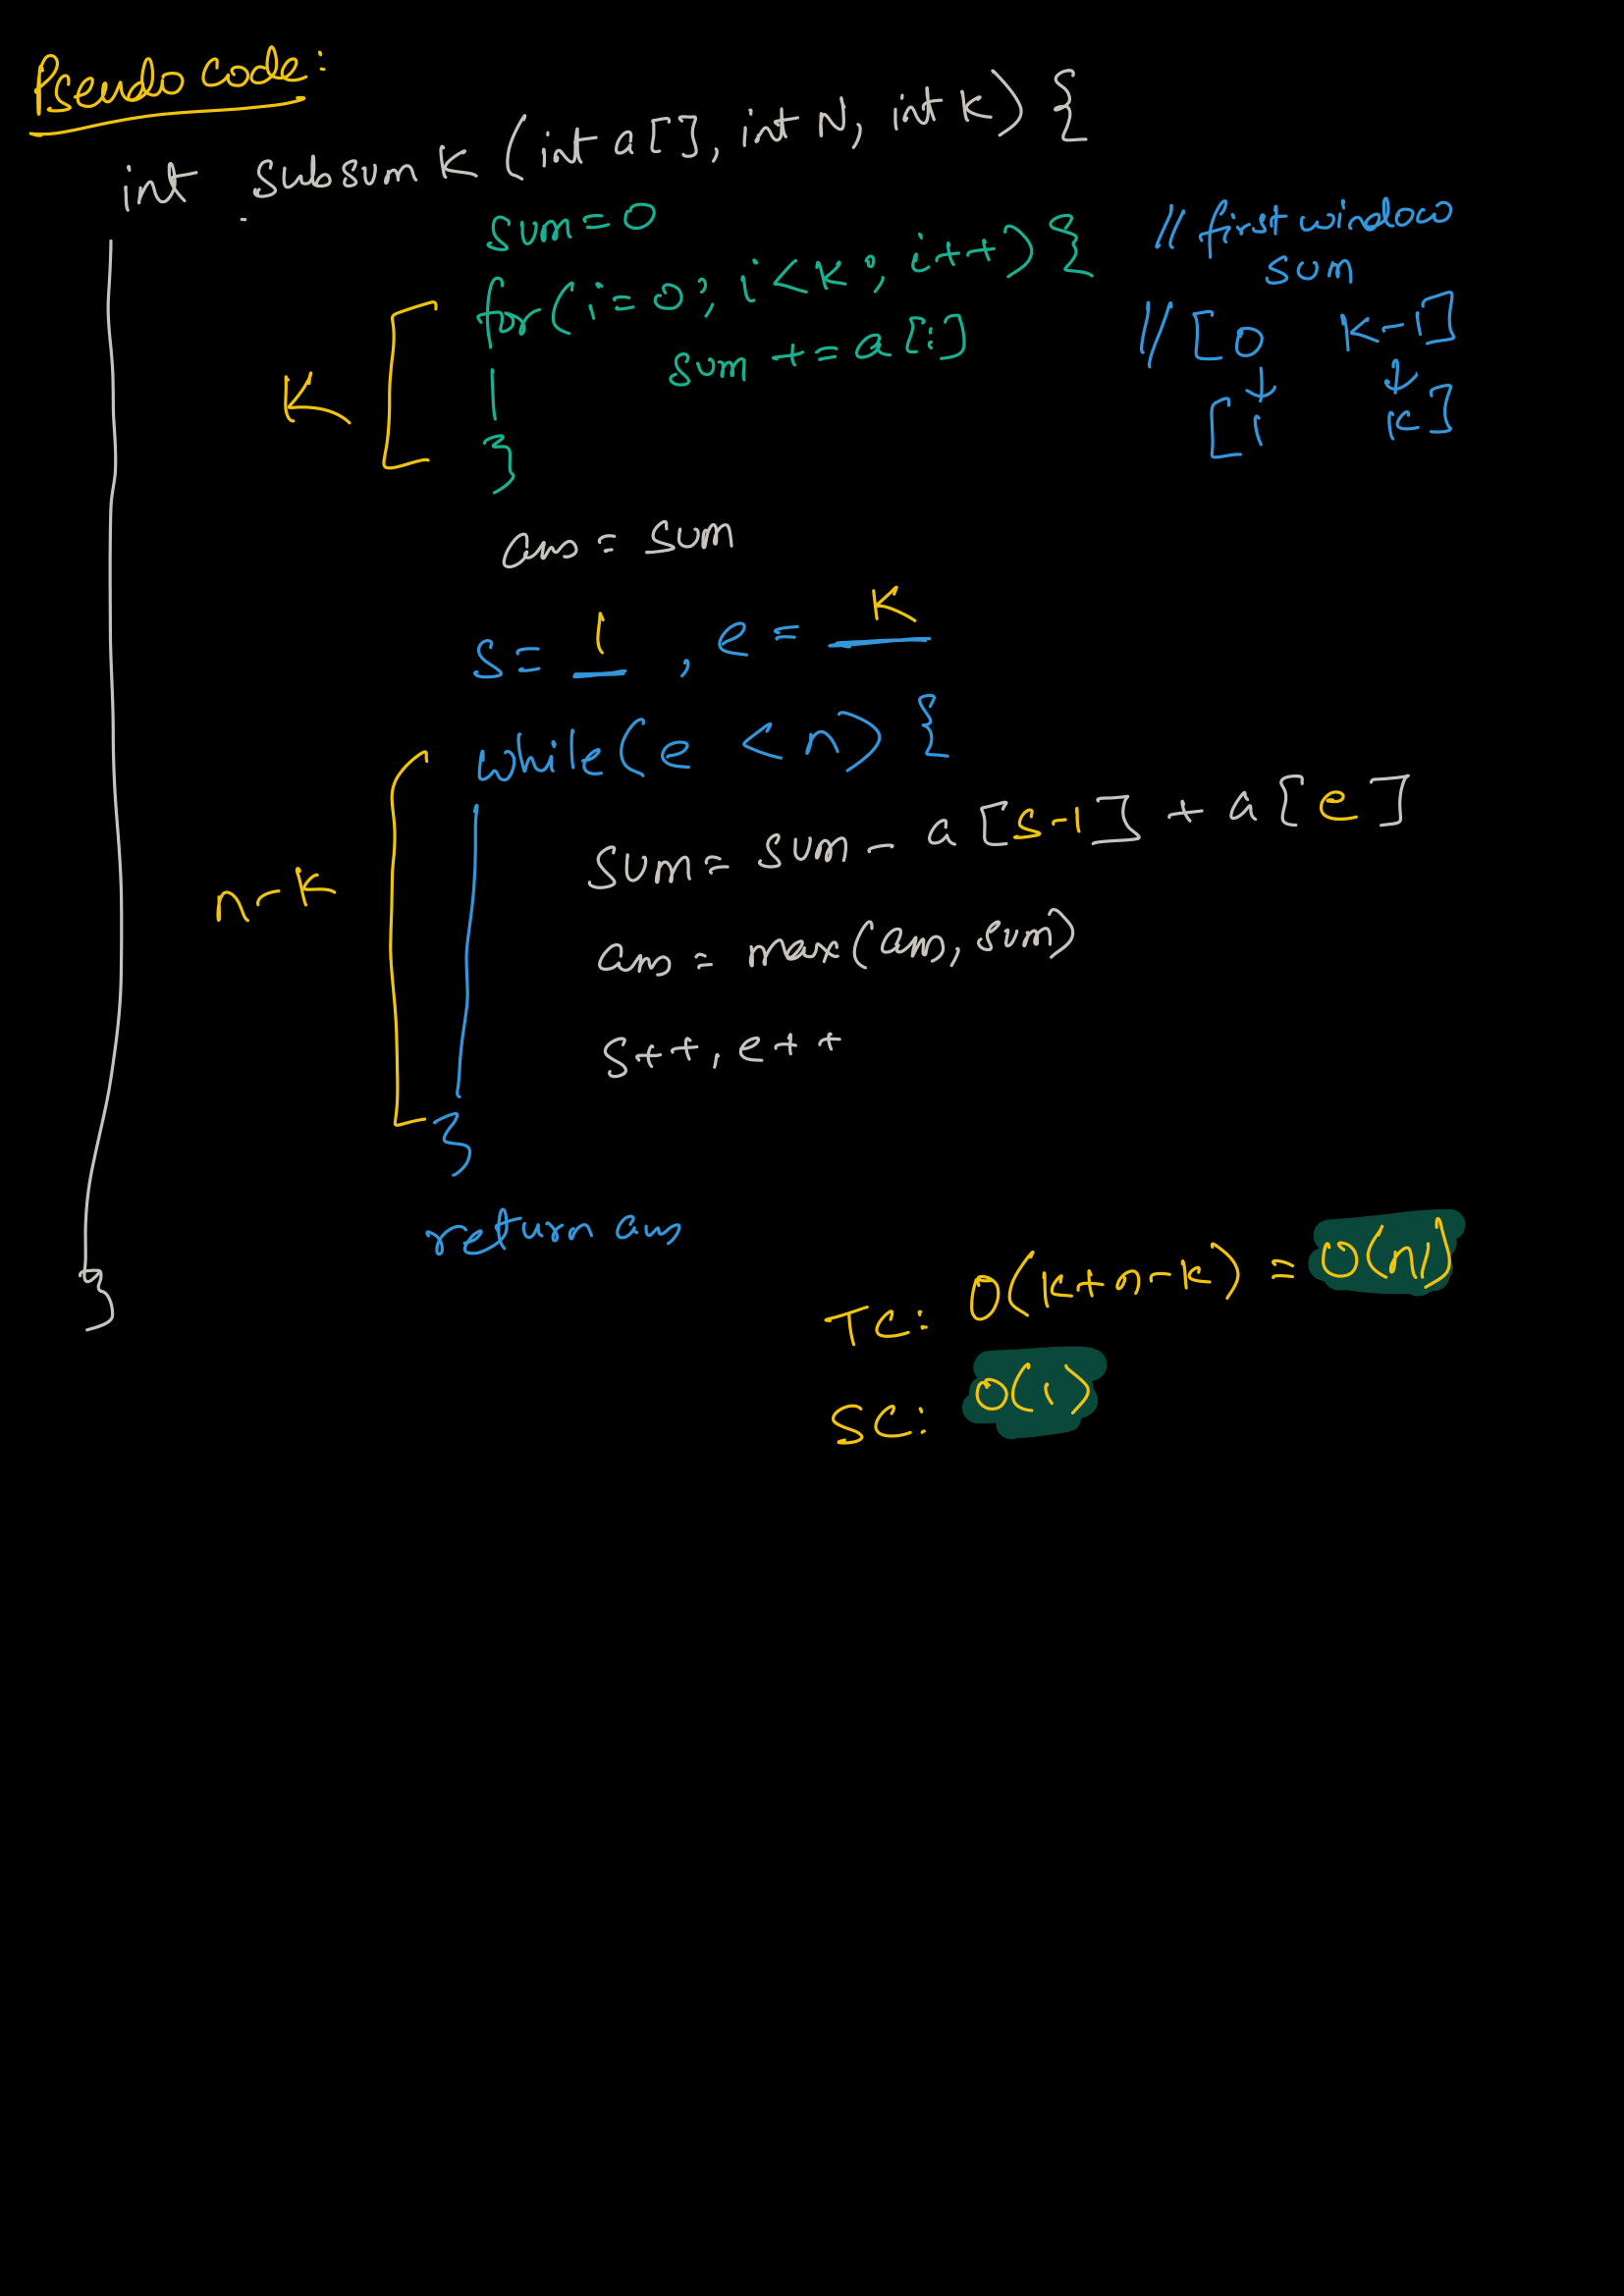 Pseudo code:
int subsumK (int a[], int N, int K) {
sum = 0
for(i=0; i<K; i++) { // first window
sum
sum += a[i] // [0 K-1]
↓ ↓
[1 K]
K
}
ans = sum
s = 1 , e = K
while(e < n) {
sum = sum - a[s-1] + a[e]
n-K
ans = max(ans, sum)
s++, e++
}
return ans
}
TC: O(k+n-k) = O(n)
SC: O(1)